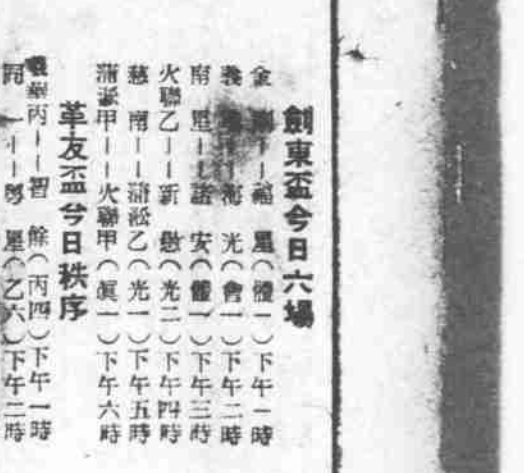 劍東盃今日六場
金　——福星(體一)下午一時
義　——海光(會一)下午二時
南星——諸安(體一)下午三時
火聯乙——新　(光二)下午四時
慈南——蒲淞乙(光一)下午五時
蒲淞甲——火聯甲(眞一)下午六時
革友盃今日秩序
丙——智餘(丙四)下午一時
星(乙六)下午二時